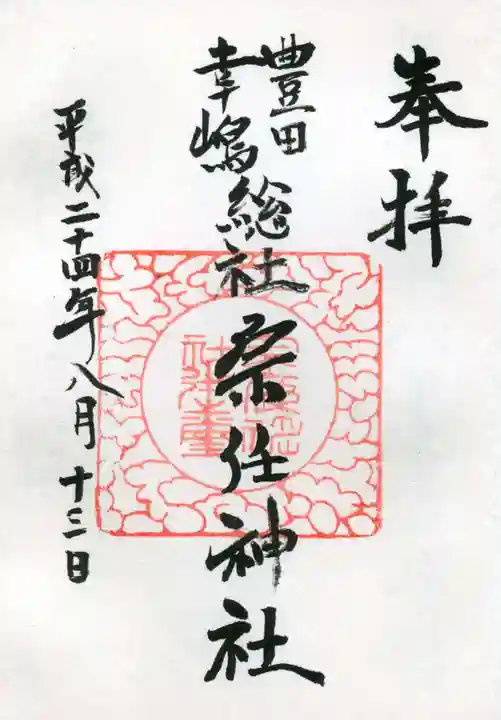 奉拝
豊田
幸嶋
総社宗任神社
平成二十四年八月十三日